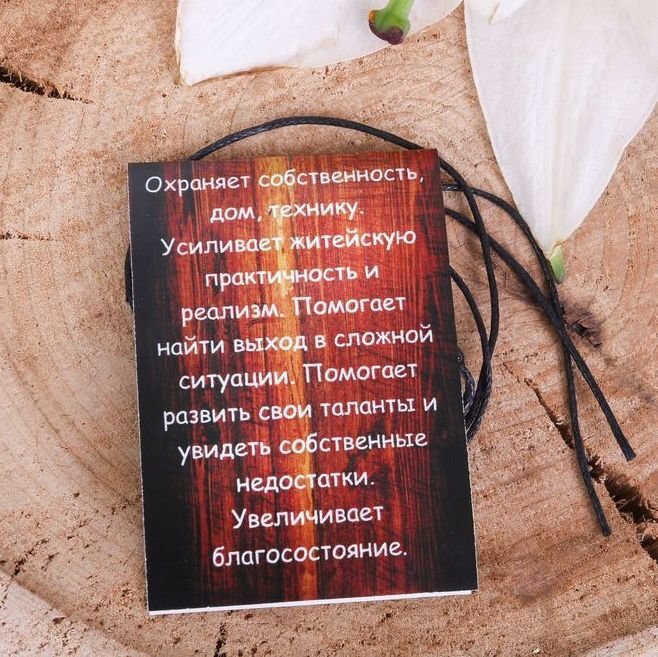 Охраняет собственность,
дом, технику.
Усиливает житейскую
практичность и
реализм. Помогает
найти выход в сложной
ситуации. Помогает
развить свои таланты и
увидеть собственные
недостатки.
Увеличивает
благосостояние.